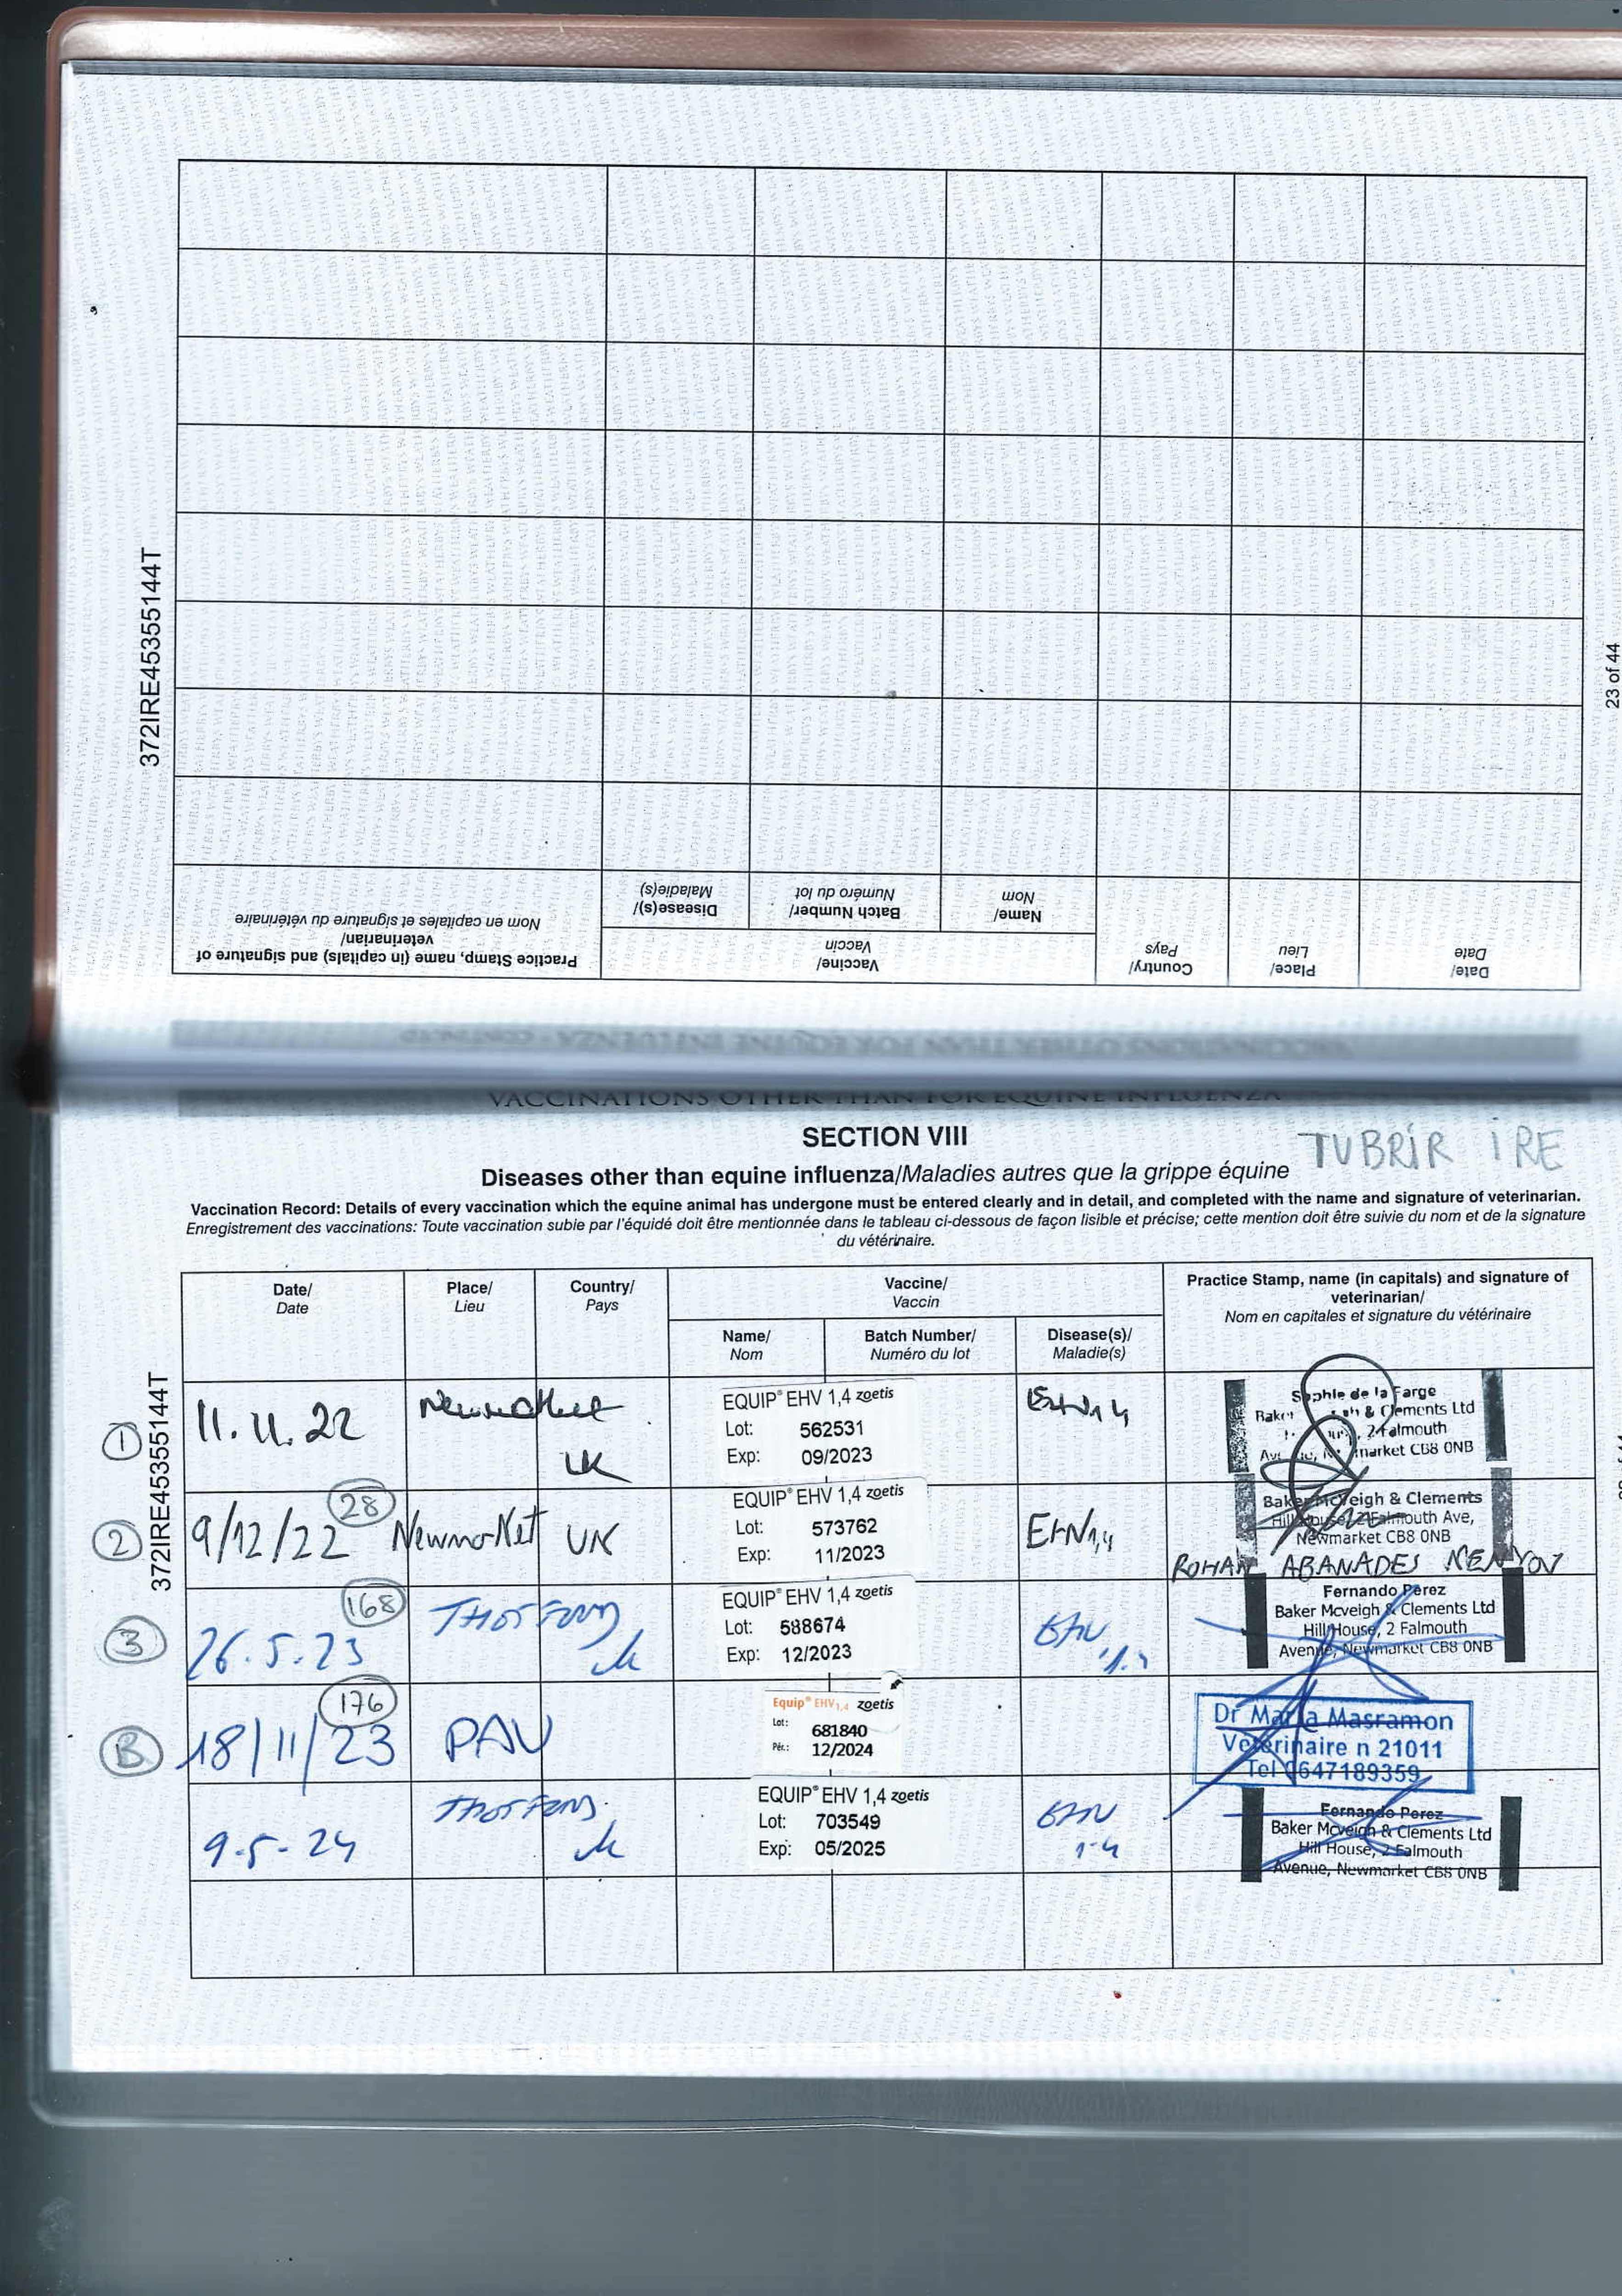 372IRE45355144T
23 of 44
Practice Stamp, name (in capitals) and signature of
veterinarian/
Nom en capitales et signature du vétérinaire
Disease(s)/
Maladie(s)
Batch Number/
Numéro du lot
Name/
Nom
Vaccine/
Vaccin
Country/
Pays
Place/
Lieu
Date/
Date
VACCINATIONS OTHER THAN FOR EQUINE INFLUENZA - CONTINUED
VACCINATIONS OTHER THAN FOR EQUINE INFLUENZA
SECTION VIII
TUBRIR IRE
Diseases other than equine influenza/Maladies autres que la grippe équine
Vaccination Record: Details of every vaccination which the equine animal has undergone must be entered clearly and in detail, and completed with the name and signature of veterinarian.
Enregistrement des vaccinations: Toute vaccination subie par l'équidé doit être mentionnée dans le tableau ci-dessous de façon lisible et précise; cette mention doit être suivie du nom et de la signature
du vétérinaire.
372IRE45355144T
Date/
Date
Place/
Lieu
Country/
Pays
Vaccine/
Vaccin
Name/
Nom
Batch Number/
Numéro du lot
Disease(s)/
Maladie(s)
Practice Stamp, name (in capitals) and signature of
veterinarian/
Nom en capitales et signature du vétérinaire
1
11.11.22
Newmarket
UK
EQUIP® EHV 1,4 zoetis
Lot: 562531
Exp: 09/2023
EHV1,4
Sophie de la Farge
Baker & Clements Ltd
2 Falmouth
Newmarket CB8 0NB
2
9/12/22
28
Newmarket
UK
EQUIP® EHV 1,4 zoetis
Lot: 573762
Exp: 11/2023
EHV1,4
Baker McVeigh & Clements
Hill House, 2 Falmouth Ave,
Newmarket CB8 0NB
ROHAN ABANADES
3
26.5.23
168
UK
EQUIP® EHV 1,4 zoetis
Lot: 588674
Exp: 12/2023
EHV
Fernando Perez
Baker Mcveigh & Clements Ltd
Hill House, 2 Falmouth
Avenue, Newmarket CB8 0NB
B
18/11/23
176
PAU
Equip® EHV1,4 zoetis
Lot: 681840
Pér.: 12/2024
Dr Maria Masramon
Vétérinaire n 21011
Tel 0647189359
9-5-24
UK
EQUIP® EHV 1,4 zoetis
Lot: 703549
Exp: 05/2025
EHV
1-4
Fernando Perez
Baker Mcveigh & Clements Ltd
Hill House, 2 Falmouth
Avenue, Newmarket CB8 0NB